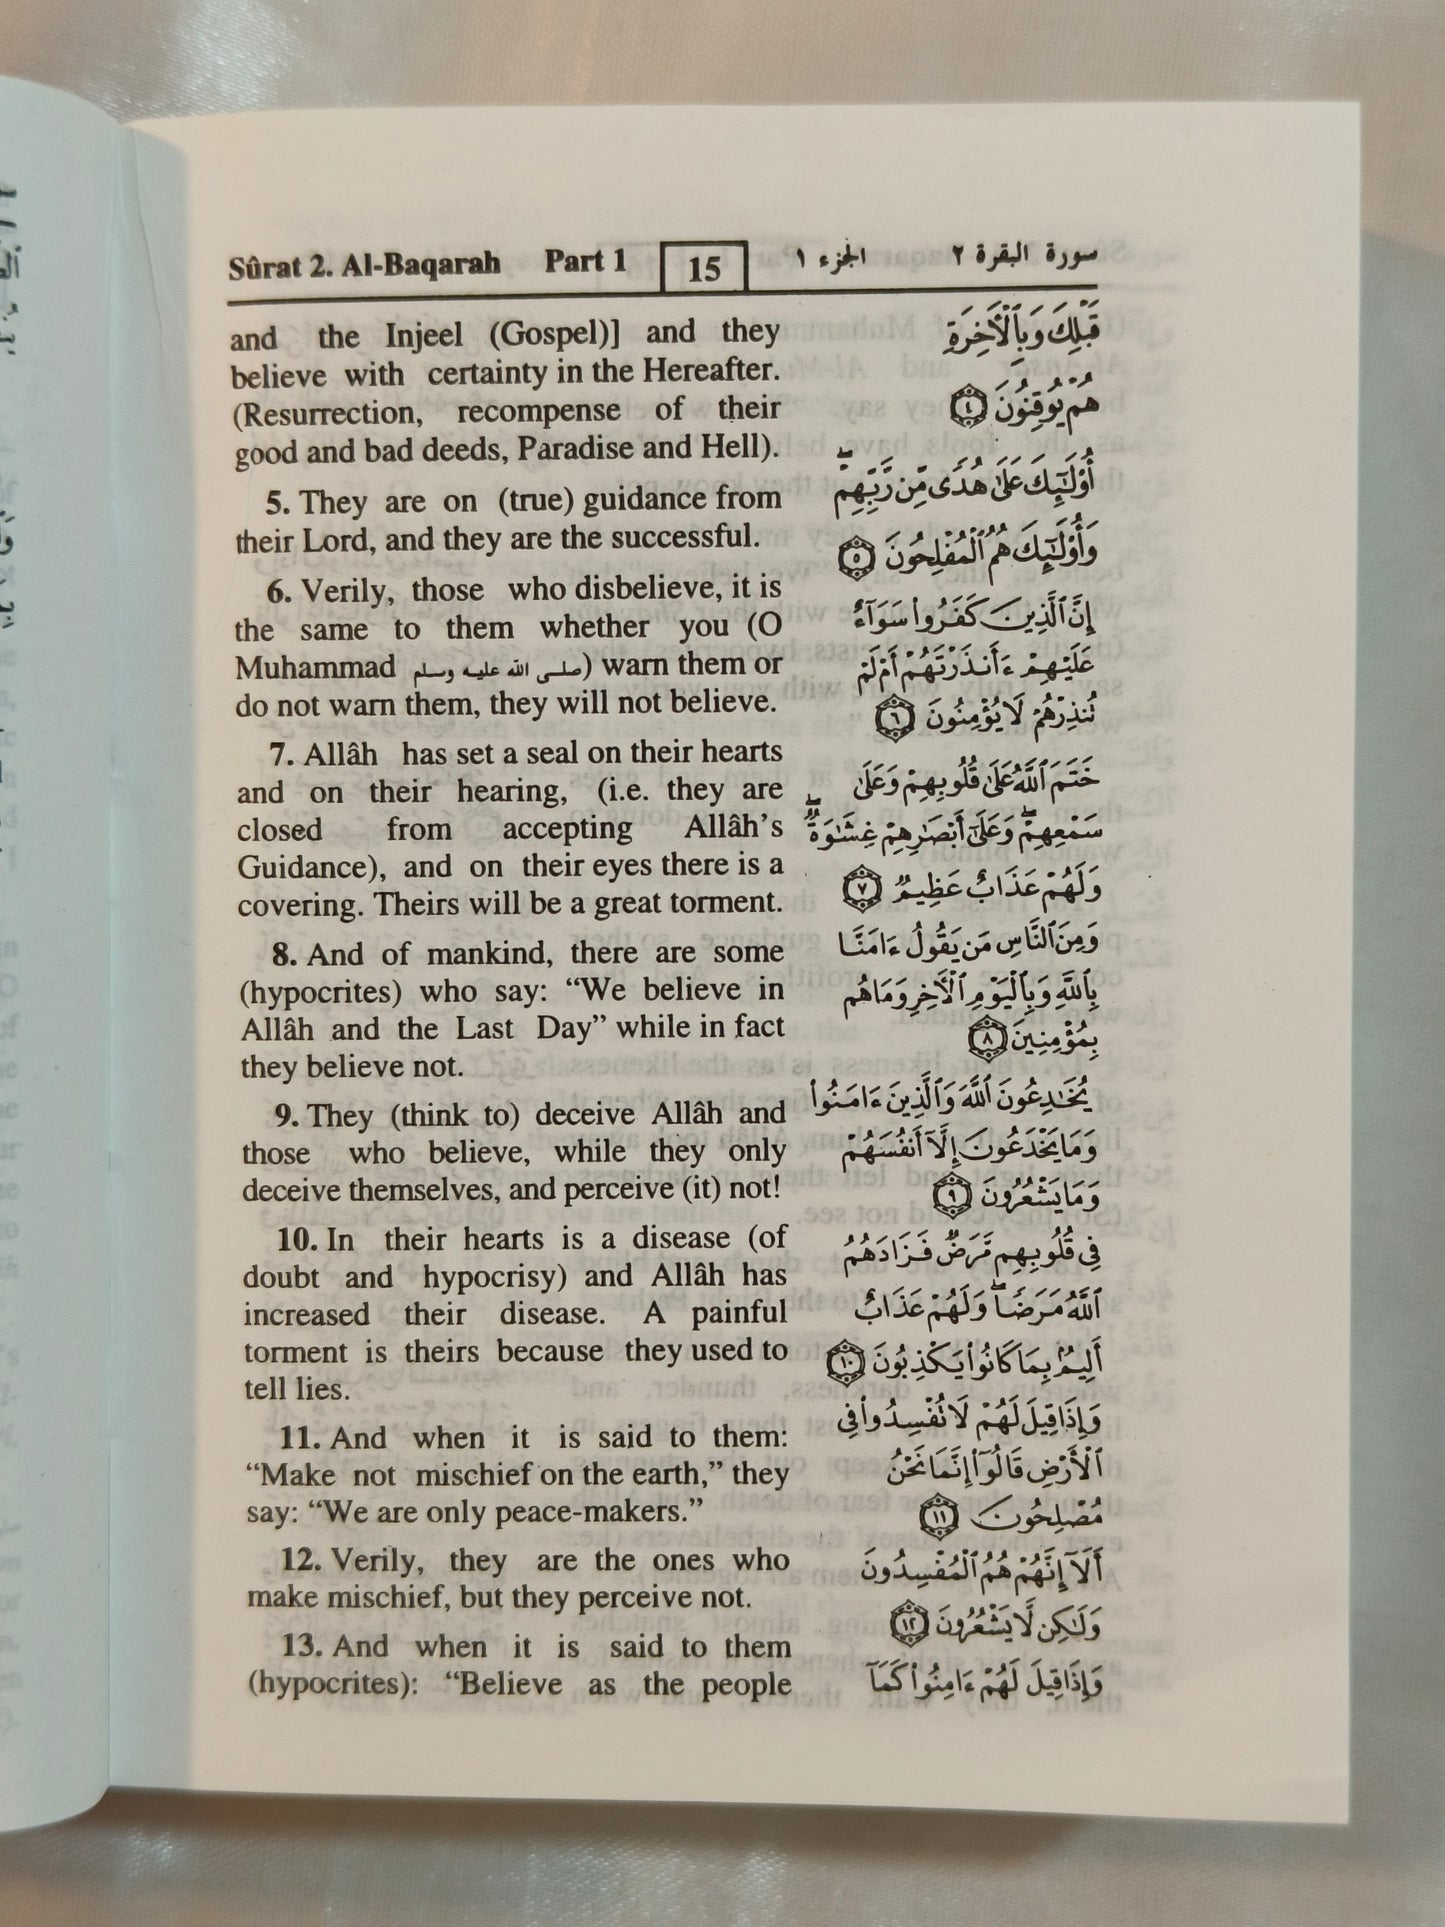 Sûrat 2. Al-Baqarah Part 1 15 الجزء ١ سورة البقرة ٢
and the Injeel (Gospel)] and they
believe with certainty in the Hereafter.
(Resurrection, recompense of their
good and bad deeds, Paradise and Hell).
5. They are on (true) guidance from
their Lord, and they are the successful.
6. Verily, those who disbelieve, it is
the same to them whether you (O
Muhammad صلى الله عليه وسلم) warn them or
do not warn them, they will not believe.
7. Allâh has set a seal on their hearts
and on their hearing, (i.e. they are
closed from accepting Allâh’s
Guidance), and on their eyes there is a
covering. Theirs will be a great torment.
8. And of mankind, there are some
(hypocrites) who say: “We believe in
Allâh and the Last Day” while in fact
they believe not.
9. They (think to) deceive Allâh and
those who believe, while they only
deceive themselves, and perceive (it) not!
10. In their hearts is a disease (of
doubt and hypocrisy) and Allâh has
increased their disease. A painful
torment is theirs because they used to
tell lies.
11. And when it is said to them:
“Make not mischief on the earth,” they
say: “We are only peace-makers.”
12. Verily, they are the ones who
make mischief, but they perceive not.
13. And when it is said to them
(hypocrites): “Believe as the people
قَبْلِكَ وَبِٱلْأَخِرَةِ
هُمْ يُوقِنُونَ ٤
أُوْلَٰٓئِكَ عَلَىٰ هُدًى مِّن رَّبِّهِمْۖ
وَأُوْلَٰٓئِكَ هُمُ ٱلْمُفْلِحُونَ ٥
إِنَّ ٱلَّذِينَ كَفَرُوا۟ سَوَآءٌ
عَلَيْهِمْ ءَأَنذَرْتَهُمْ أَمْ لَمْ
تُنذِرْهُمْ لَا يُؤْمِنُونَ ٦
خَتَمَ ٱللَّهُ عَلَىٰ قُلُوبِهِمْ وَعَلَىٰ
سَمْعِهِمْۖ وَعَلَىٰٓ أَبْصَٰرِهِمْ غِشَٰوَةٌۖ
وَلَهُمْ عَذَابٌ عَظِيمٌ ٧
وَمِنَ ٱلنَّاسِ مَن يَقُولُ ءَامَنَّا
بِٱللَّهِ وَبِٱلْيَوْمِ ٱلْأَخِرِ وَمَا هُم
بِمُؤْمِنِينَ ٨
يُخَٰدِعُونَ ٱللَّهَ وَٱلَّذِينَ ءَامَنُوا۟
وَمَا يَخْدَعُونَ إِلَّآ أَنفُسَهُمْ
وَمَا يَشْعُرُونَ ٩
فِى قُلُوبِهِم مَّرَضٌ فَزَادَهُمُ
ٱللَّهُ مَرَضًاۖ وَلَهُمْ عَذَابٌ
أَلِيمٌۢ بِمَا كَانُوا۟ يَكْذِبُونَ ١٠
وَإِذَا قِيلَ لَهُمْ لَا تُفْسِدُوا۟ فِى
ٱلْأَرْضِ قَالُوٓا۟ إِنَّمَا نَحْنُ
مُصْلِحُونَ ١١
أَلَآ إِنَّهُمْ هُمُ ٱلْمُفْسِدُونَ
وَلَٰكِن لَّا يَشْعُرُونَ ١٢
وَإِذَا قِيلَ لَهُمْ ءَامِنُوا۟ كَمَآ